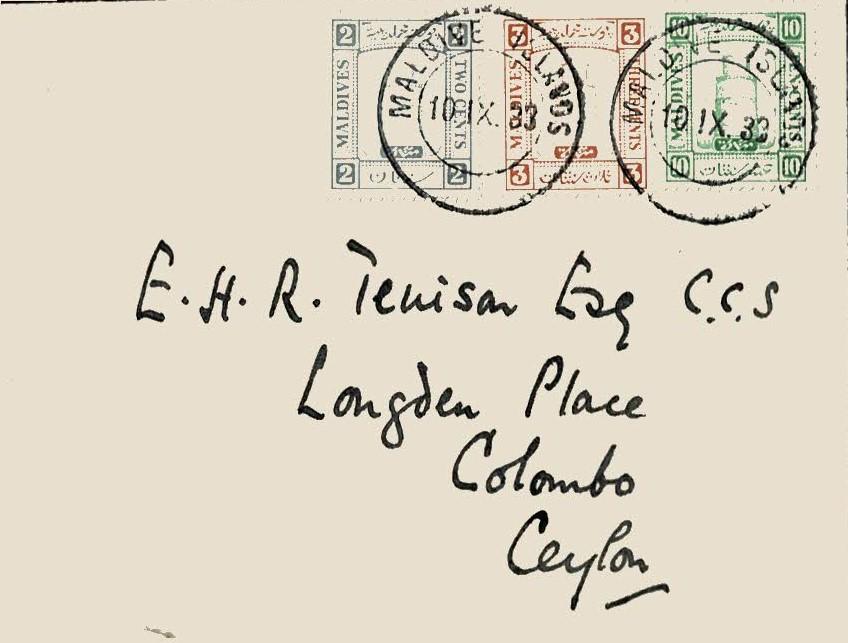 2 2 3 3 10 10
MALDIVES TWO CENTS MALDIVES THREE CENTS MALDIVES CENTS
2 2 3 3 10 10
MALDIVE ISLANDS
10 IX. 33
MALDIVE ISLANDS
10 IX. 33
E. H. R. Tenison Esq C.C.S
Longden Place
Colombo
Ceylon